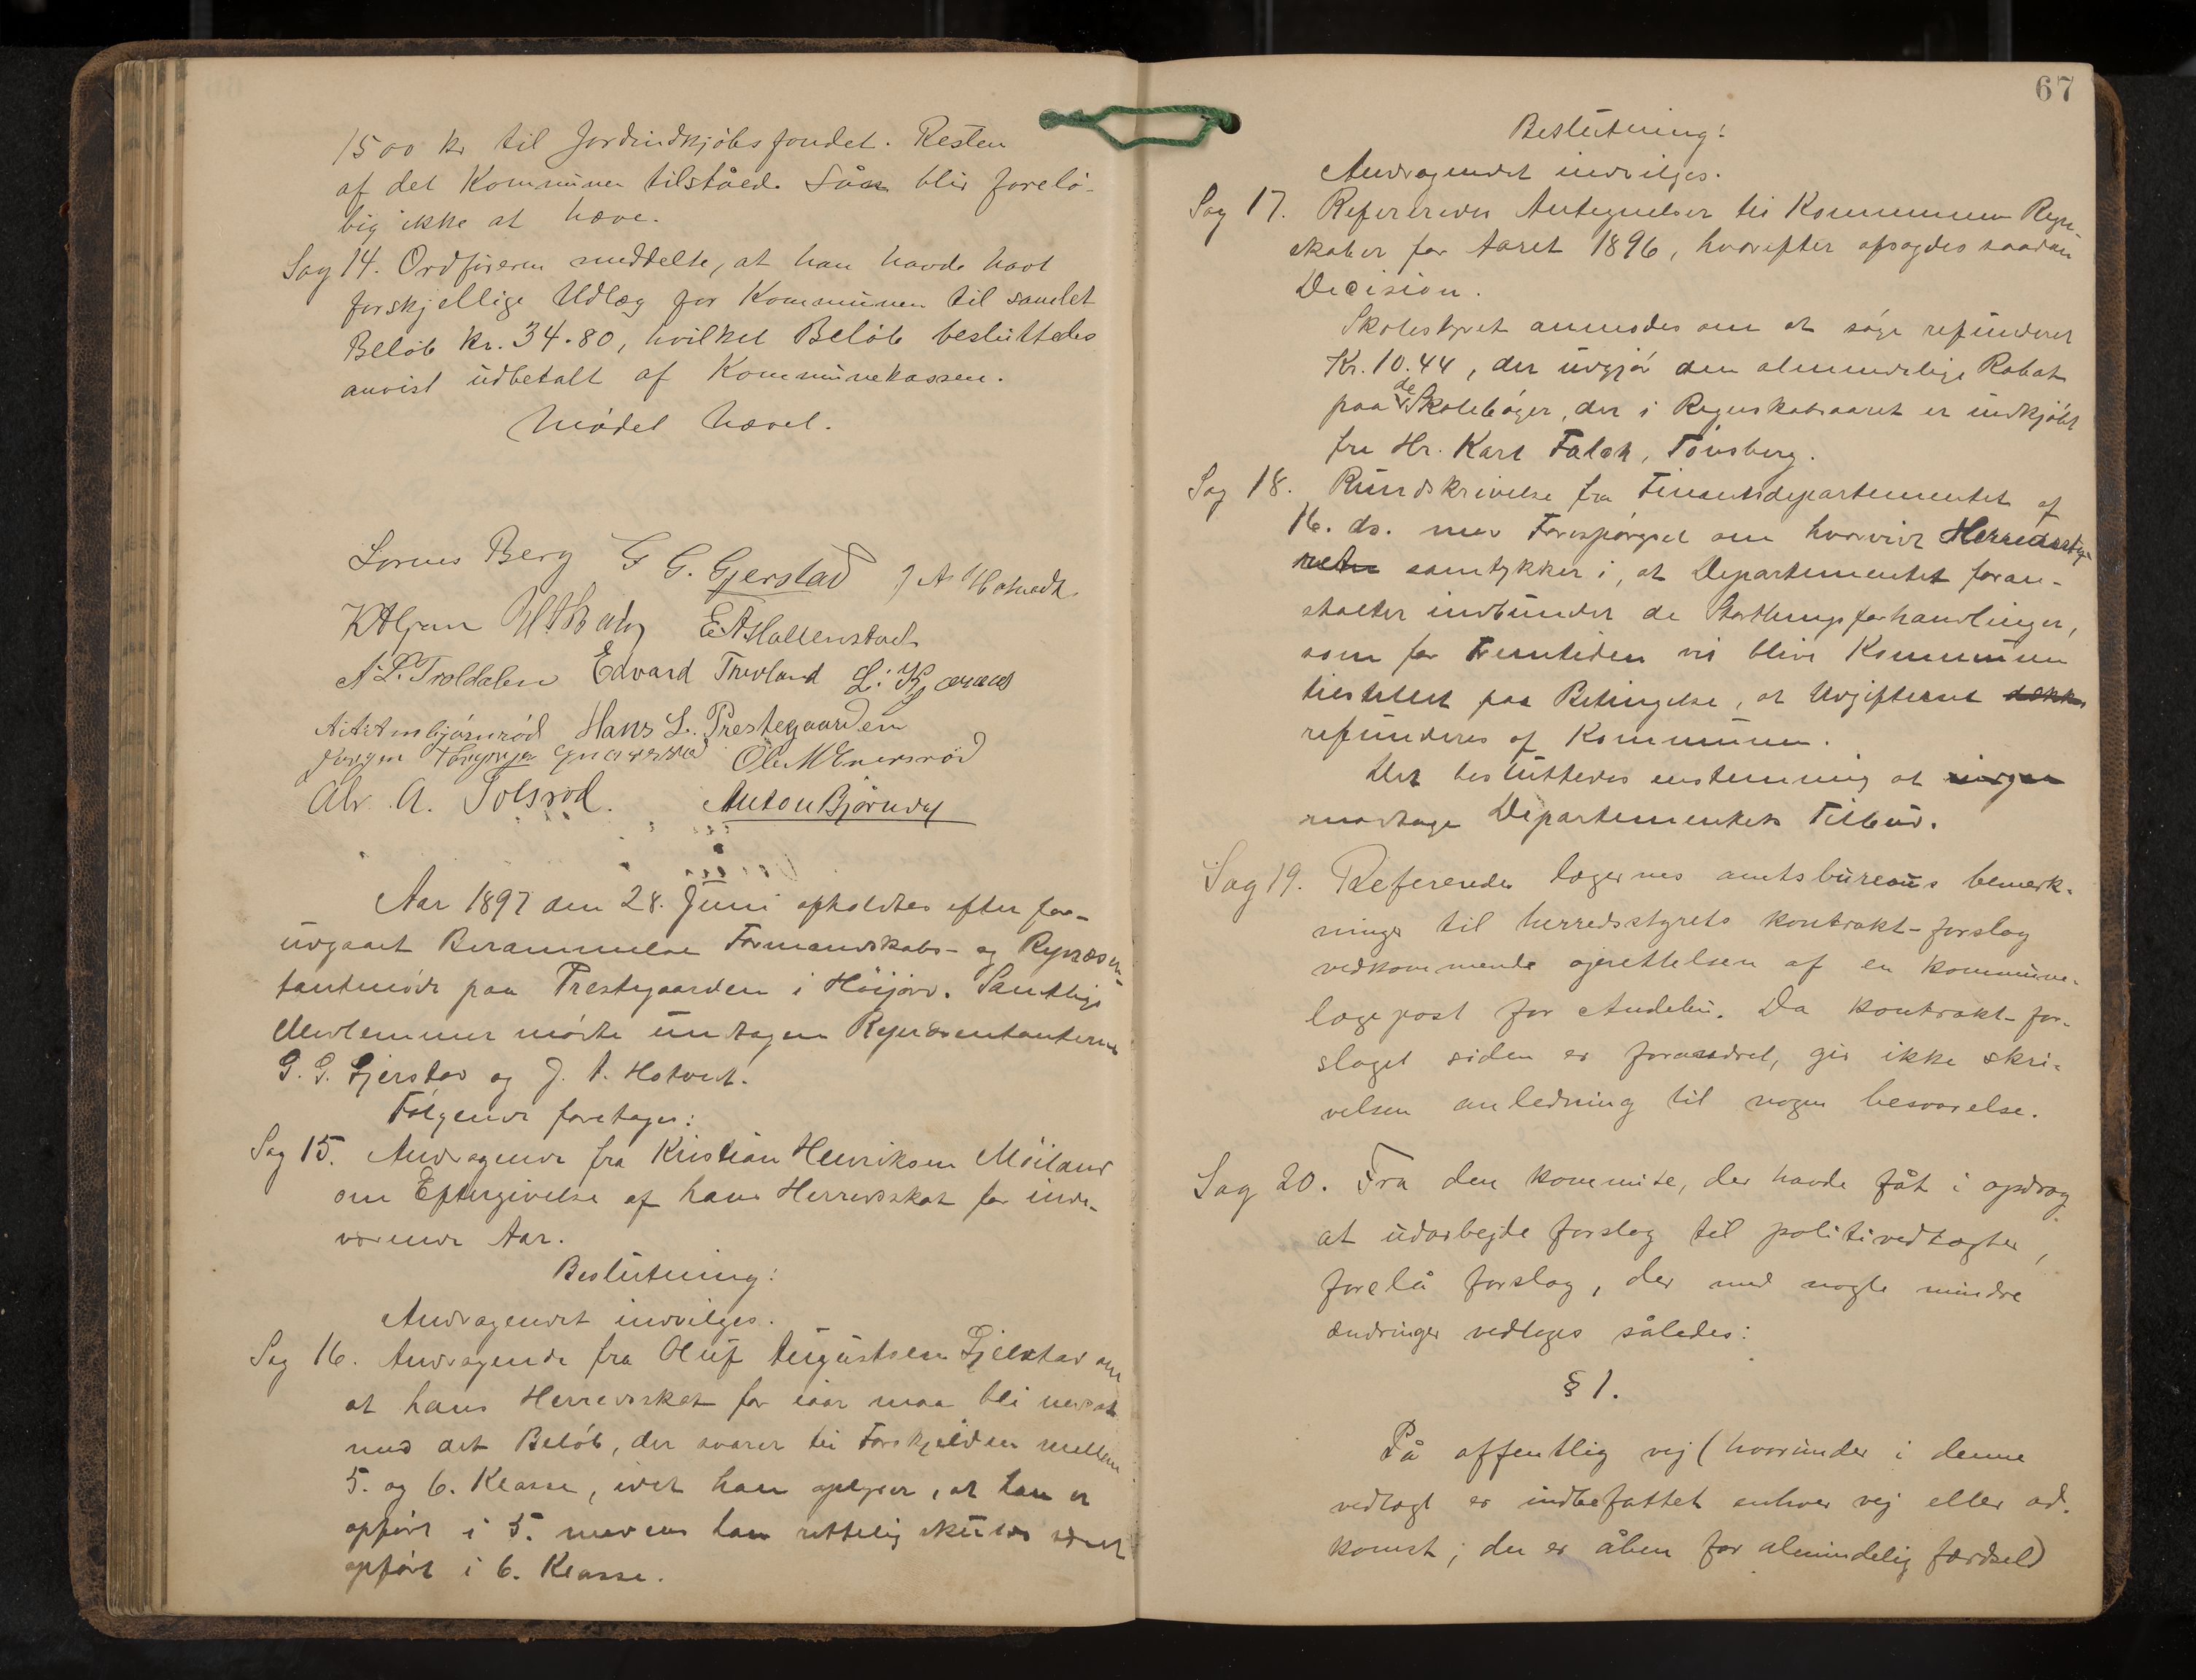 1500 kr til Jordindkjøbsfondet. Resten
af det Kommunen tilståede Lån blir forelö-
big ikke at hæve.
Sag 14. Ordføreren meddelte, at han havde havt
forskjellige Udlæg for Kommunen til samlet
Beløb kr. 34.80, hvilket Beløb besluttedes
anvist udbetalt af Kommunekassen.
Mødet hævet.
Lorens Berg G. G. Gjerstad J A Hotvedt
E A Hallenstvedt
A. L. Troldalen Edvard Trevland
Hans L. Prestegaarden
Ole M Enersrød
Alv. A. Solsrød. Anton Bjørndal
Aar 1897 den 28. Juni afholdtes efter for-
udgaaet Berammelse Formandskabs- og Repræsen-
tantmøde paa Prestegaarden i Höijord. Samtlige
Medlemmer mødte undtagen Repræsentanterne
G. G. Gjerstad og J. A. Hotvedt.
Følgende foretoges:
Sag 15. Andragende fra Kristian Henriksen Möiland
om Eftergivelse af hans Herredsskat for inde-
værende Aar.
Beslutning:
Andragendet indvilges.
Sag 16. Andragende fra Oluf Augustsen Gjelstad om
at hans Herredsskat for iaar maa bli nedsat
med det Beløb, der svarer til Forskjellen mellem
5. og 6. Klasse, idet han oplyser, at han er
opført i 5. medens han rettelig skulde været
opført i 6. Klasse.
67
Beslutning:
Andragendet indvilges.
Sag 17. Refereredes Antegnelser til Kommunens Regn-
skaber for Aaret 1896, hvorefter afsagdes saadan
Decision.
Skolestyret anmodes om at søge refunderet
Kr. 10.44, der udgjør den almindelige Rabat
paa de Skolebøger, der i Regnskabsaaret er indkjøbt
fra Hr. Karl Falck, Tønsberg.
Sag 18. Rundskrivelse fra Finantsdepartementet af
16. ds. med Forespørgsel om hvorvidt Herredssty-
ret samtykker i, at Departementet foran-
stalter indbundet de Storthingsforhandlinger,
som for Fremtiden vil blive Kommunen
tilstillet paa Betingelse, at Udgifterne
refunderes af Kommunen.
Det besluttedes enstemmig at
modtage Departementets Tilbud.
Sag 19. Referendes lægernes amtsbureaus bemærk-
ninger til herredsstyrets kontrakt-forslag
vedkommende oprettelsen af en kommune-
lægepost for Andebu. Da kontrakt-for-
slaget siden er forandret, gir ikke skri-
velsen anledning til nogen besvarelse.
Sag 20. Fra den kommite, der havde fåt i opdrag
at udarbejde forslag til politivedtægter,
forelå forslag, der med nogle mindre
ændringer vedtoges således:
§ 1.
På offentlig vej (hvorunder i denne
vedtægt er indbefattet enhver vej eller ad-
komst, der er åben for almindelig færdsel)